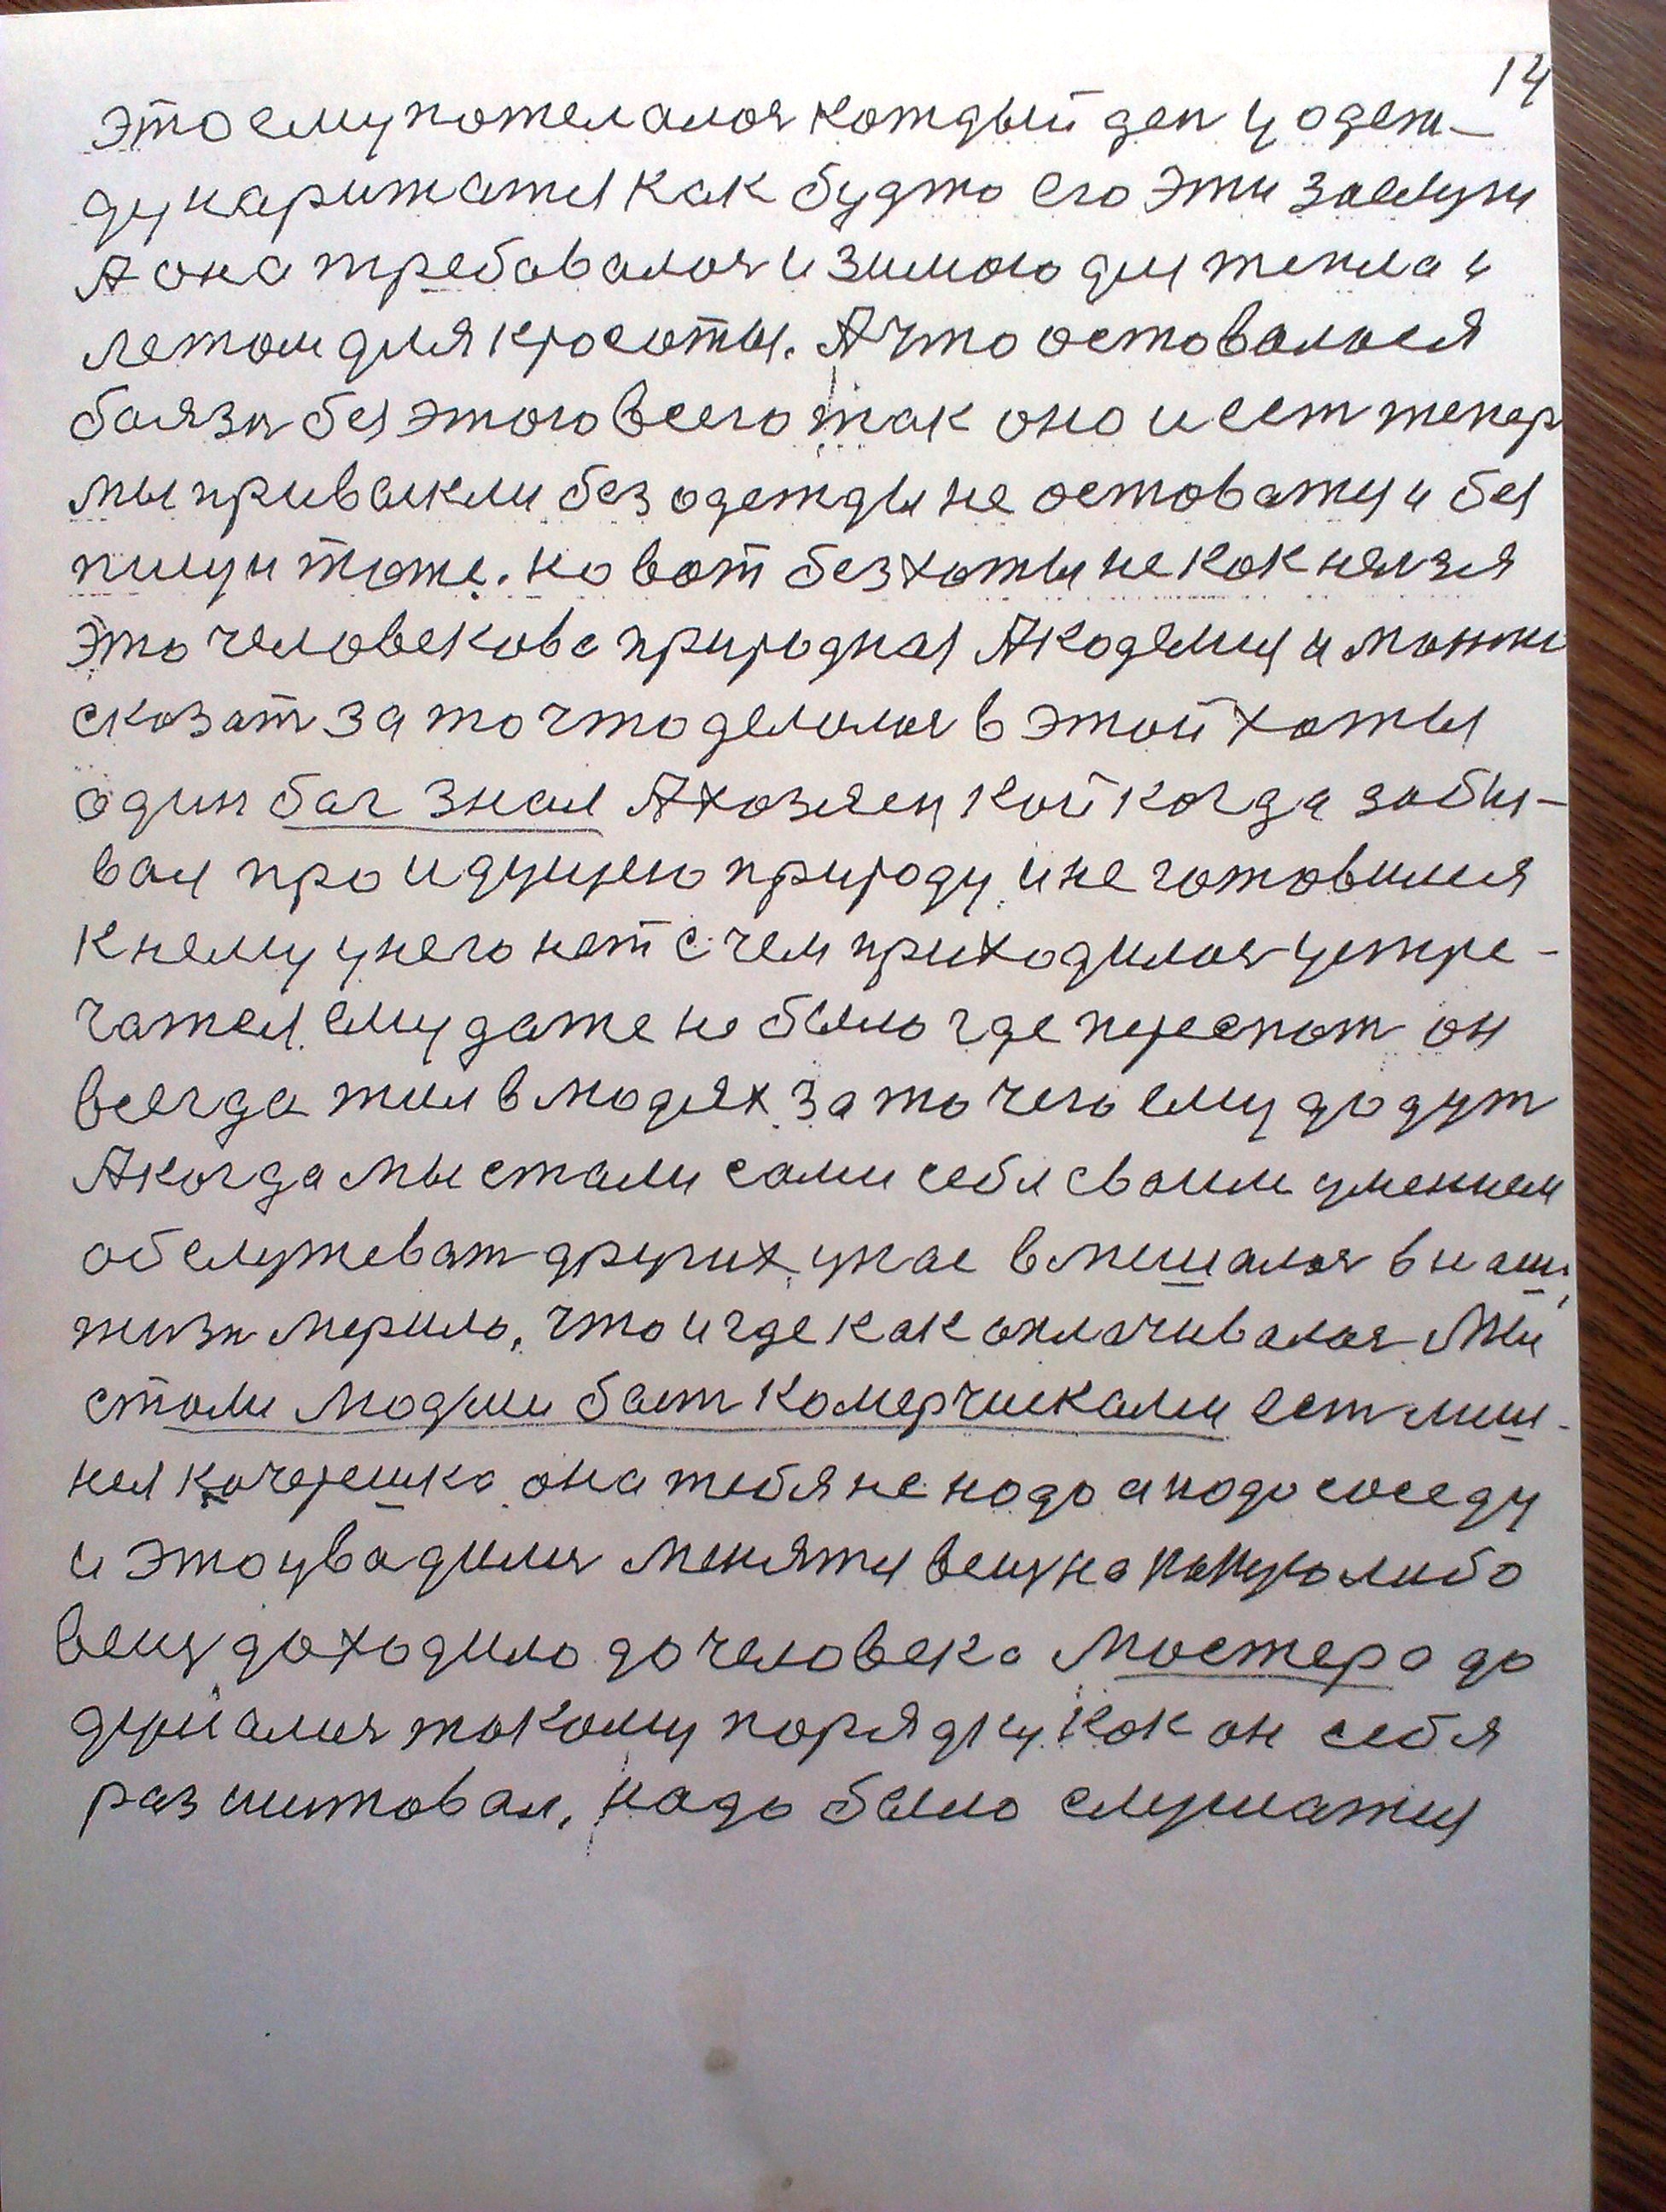 14
это ему пожелалося каждый ден у одеж-
ду наряжатся как будто его эти заслуги
А она требавалося и зимою для тепла и
летом для красоты. А что оставалося
баязн без этого всего так оно и ест тепер
мы привыкли без одежды не оставатся и без
пищи тоже. но вот без хаты некак нелзя
это человекова природная Академия и можно
сказат за то что делалося в этой хаты
один бог знал А хозяец кой когда забы-
вал про идущею природу и не готовился
к нему у него нет с чем приходилося устре-
чатся ему даже не было где переспат он
всегда жил в людях за то чего ему дадут
А когда мы стали сами себя своим умением
обслуживат других у нас вмешалося в наши
жизн мерило, что и где как оплачивалося Мы
стали людми быт комерчисками ест лиш-
ная кочерешка она тебя не надо а надо соседу
и это увадилися менятся вещ на какую либо
вещ доходило до человека мастера до
думалися такому порядку как он себя
разчитовал, надо было слушатся